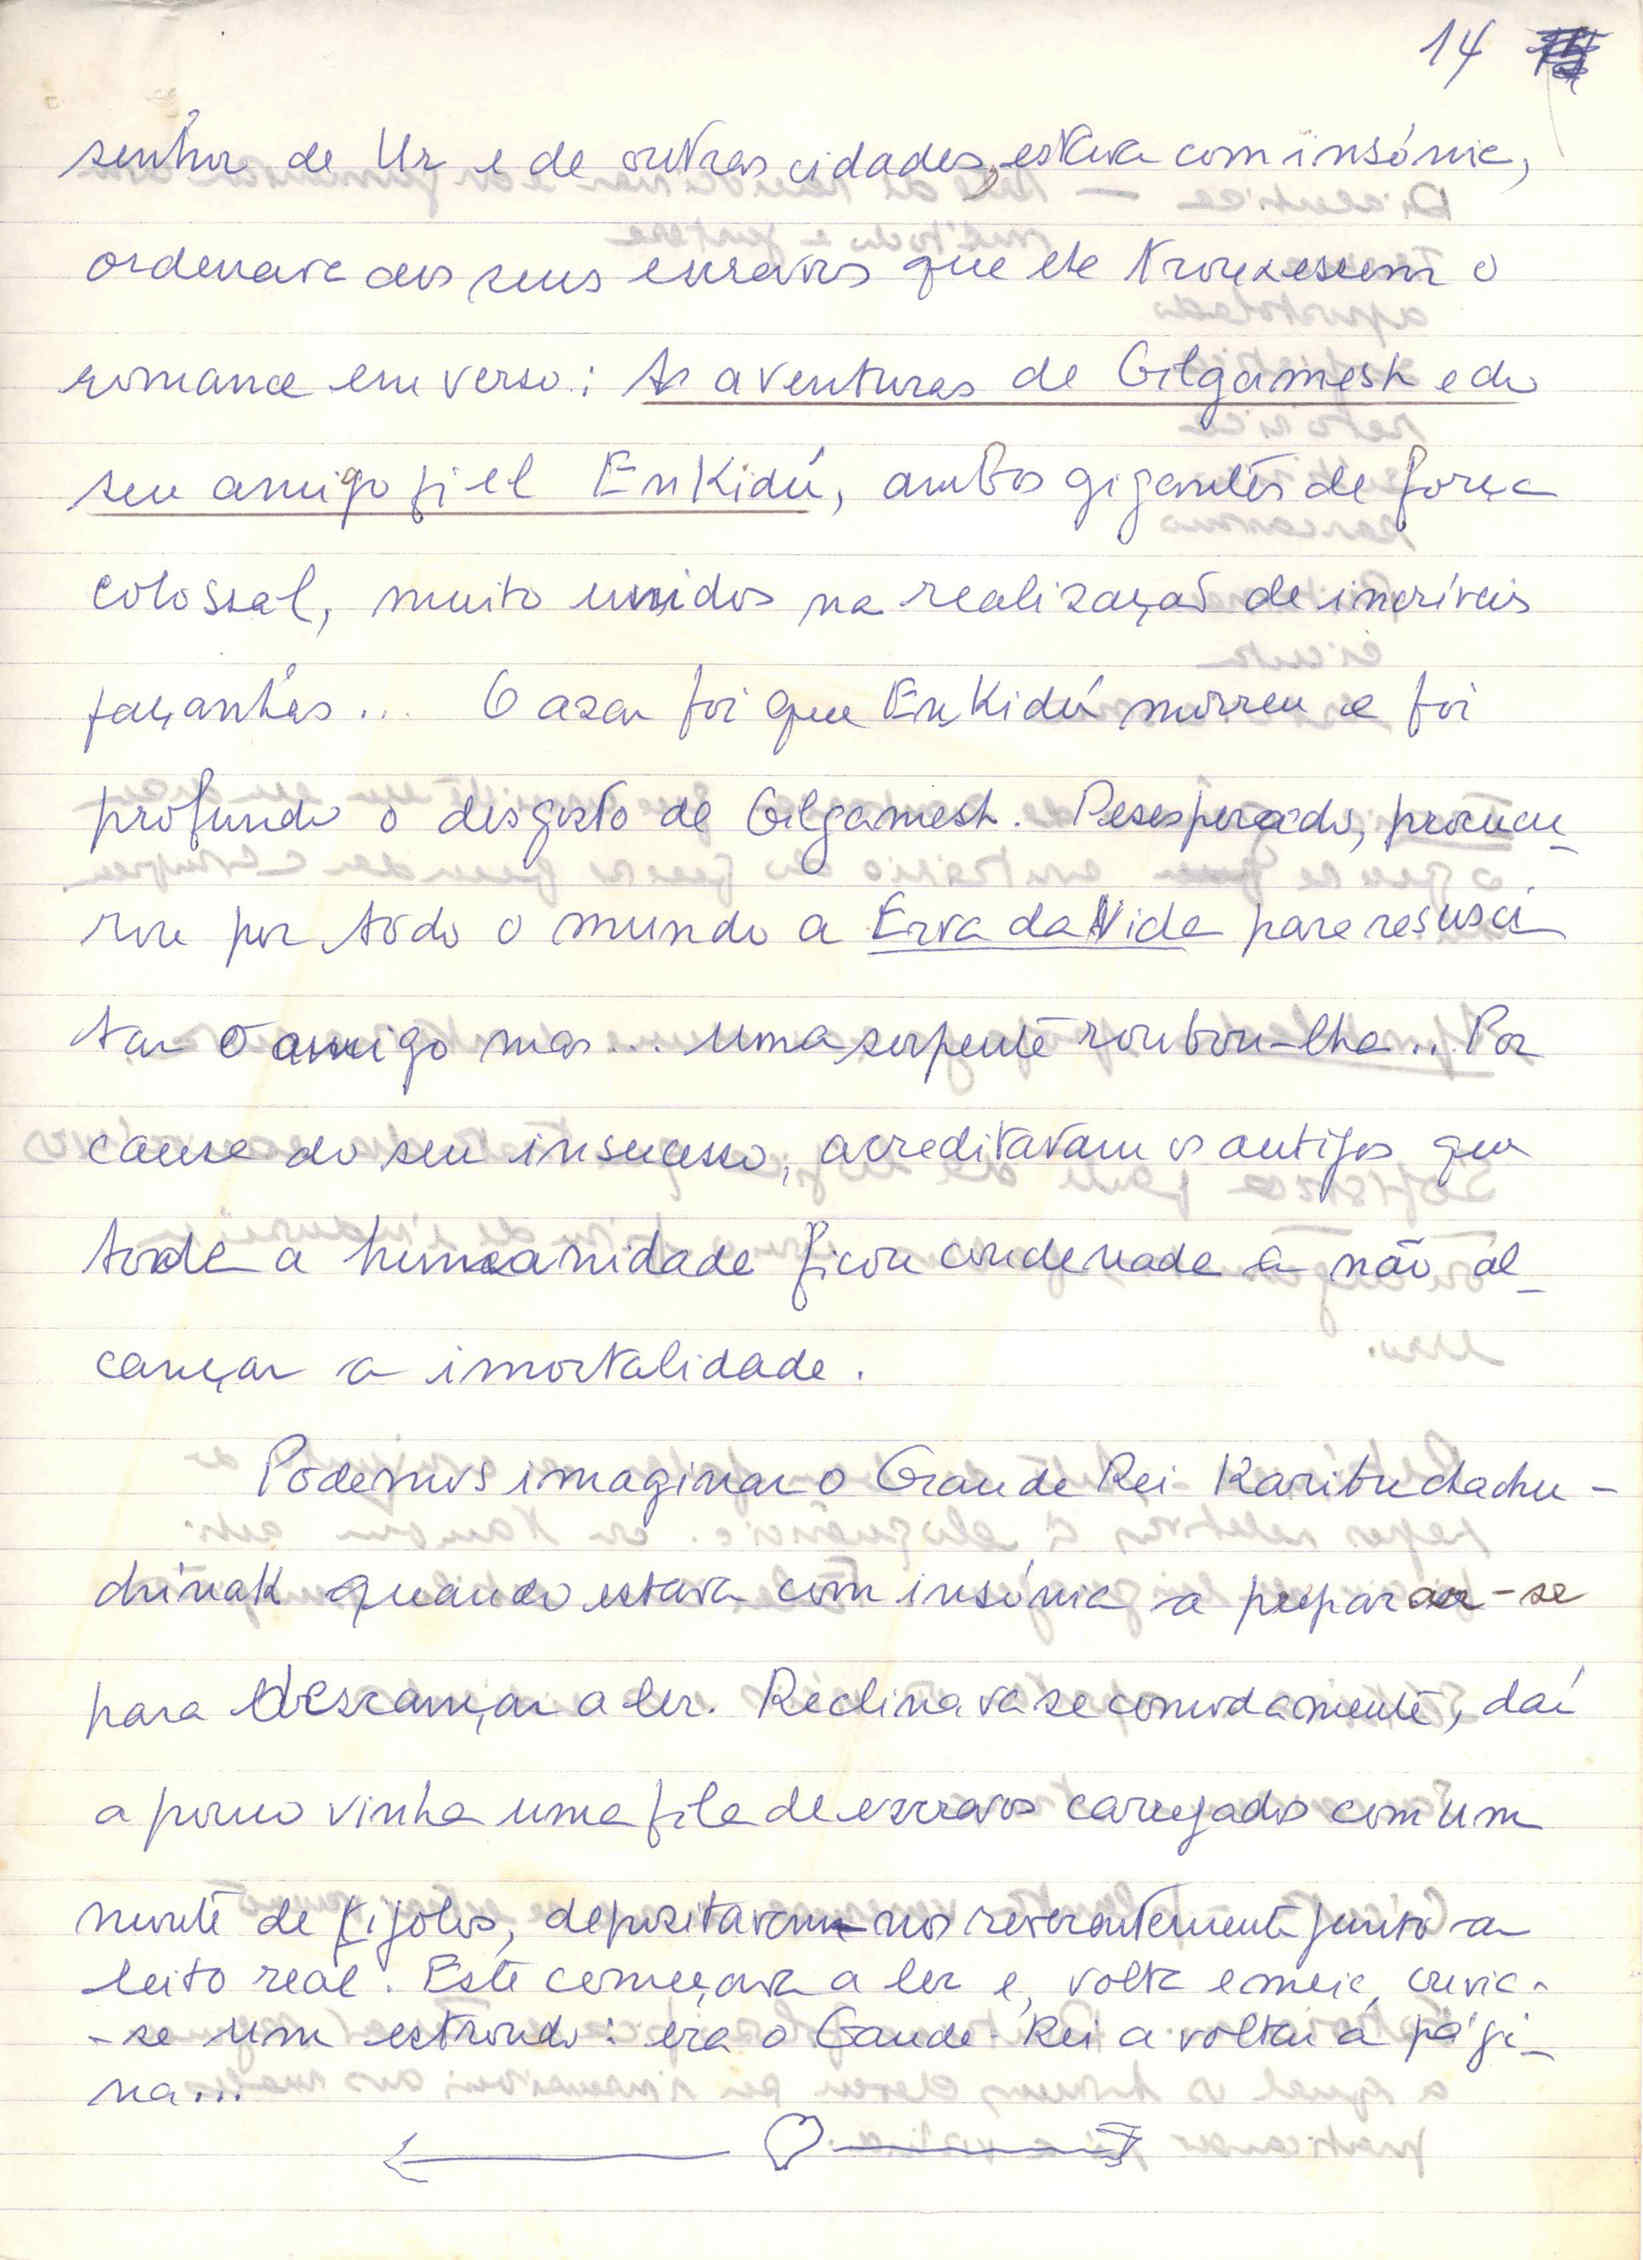 14
senhor de Ur e de outras cidades, estava com insónia,
ordenava aos seus escravos que lhe trouxessem o
romance em verso: As aventuras de Gilgamesh e do
seu amigo fiel EnKidú, ambos gigantes de força
colossal, muito unidos na realização de incríveis
façanhas... O azar foi que EnKidú morreu e foi
profundo o desgosto de Gilgamesh. Desesperado, procu-
rou por todo o mundo a Erva da Vida para resusci
tar o amigo mas... uma serpente roubou-lha... Por
causa do seu insucesso, acreditavam os antigos que
toda a humanidade ficou condenada a não al-
cançar a imortalidade.
Podemos imaginar o Grande Rei Karibuchachu-
chinak quando estava com insónia a preparar-se
para descançar a ler. Reclinava se comodamente, daí
a pouco vinha uma fila de escravos carregados com um
monte de tijolos, depositavam-nos reverentemente junto ao
leito real. Este começava a ler e, volta e meia, ouvia-
-se um estrondo: era o Gande-Rei a voltar a pági-
na...